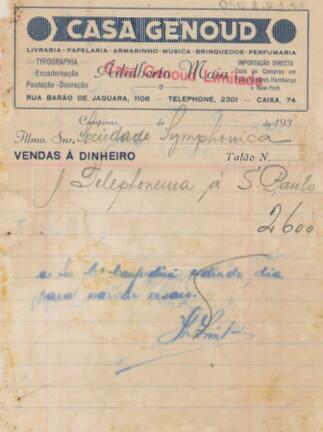 OSC 8.2.1.55
CASA GENOUD
LIVRARIA - PAPELARIA - ARMARINHO - MUSICA - BRINQUEDOS - PERFUMARIA
TYPOGRAPHIA
Encadernação
Pautação - Douração
Adalberto Maia
Casa Genoud Limitada
IMPORTAÇÃO DIRECTA
Casa de Compras em
Hamburgo
e New-York
RUA BARÃO DE JAGUARA, 1106 — TELEPHONE, 2301 — CAIXA, 74
Campinas, de de 193
Illmo. Snr. Sociedade Symphonica
VENDAS Á DINHEIRO Talão N.
1 Telephonema á S. Paulo
2600
ao Snr. pedindo dia
para marcar ensaio.